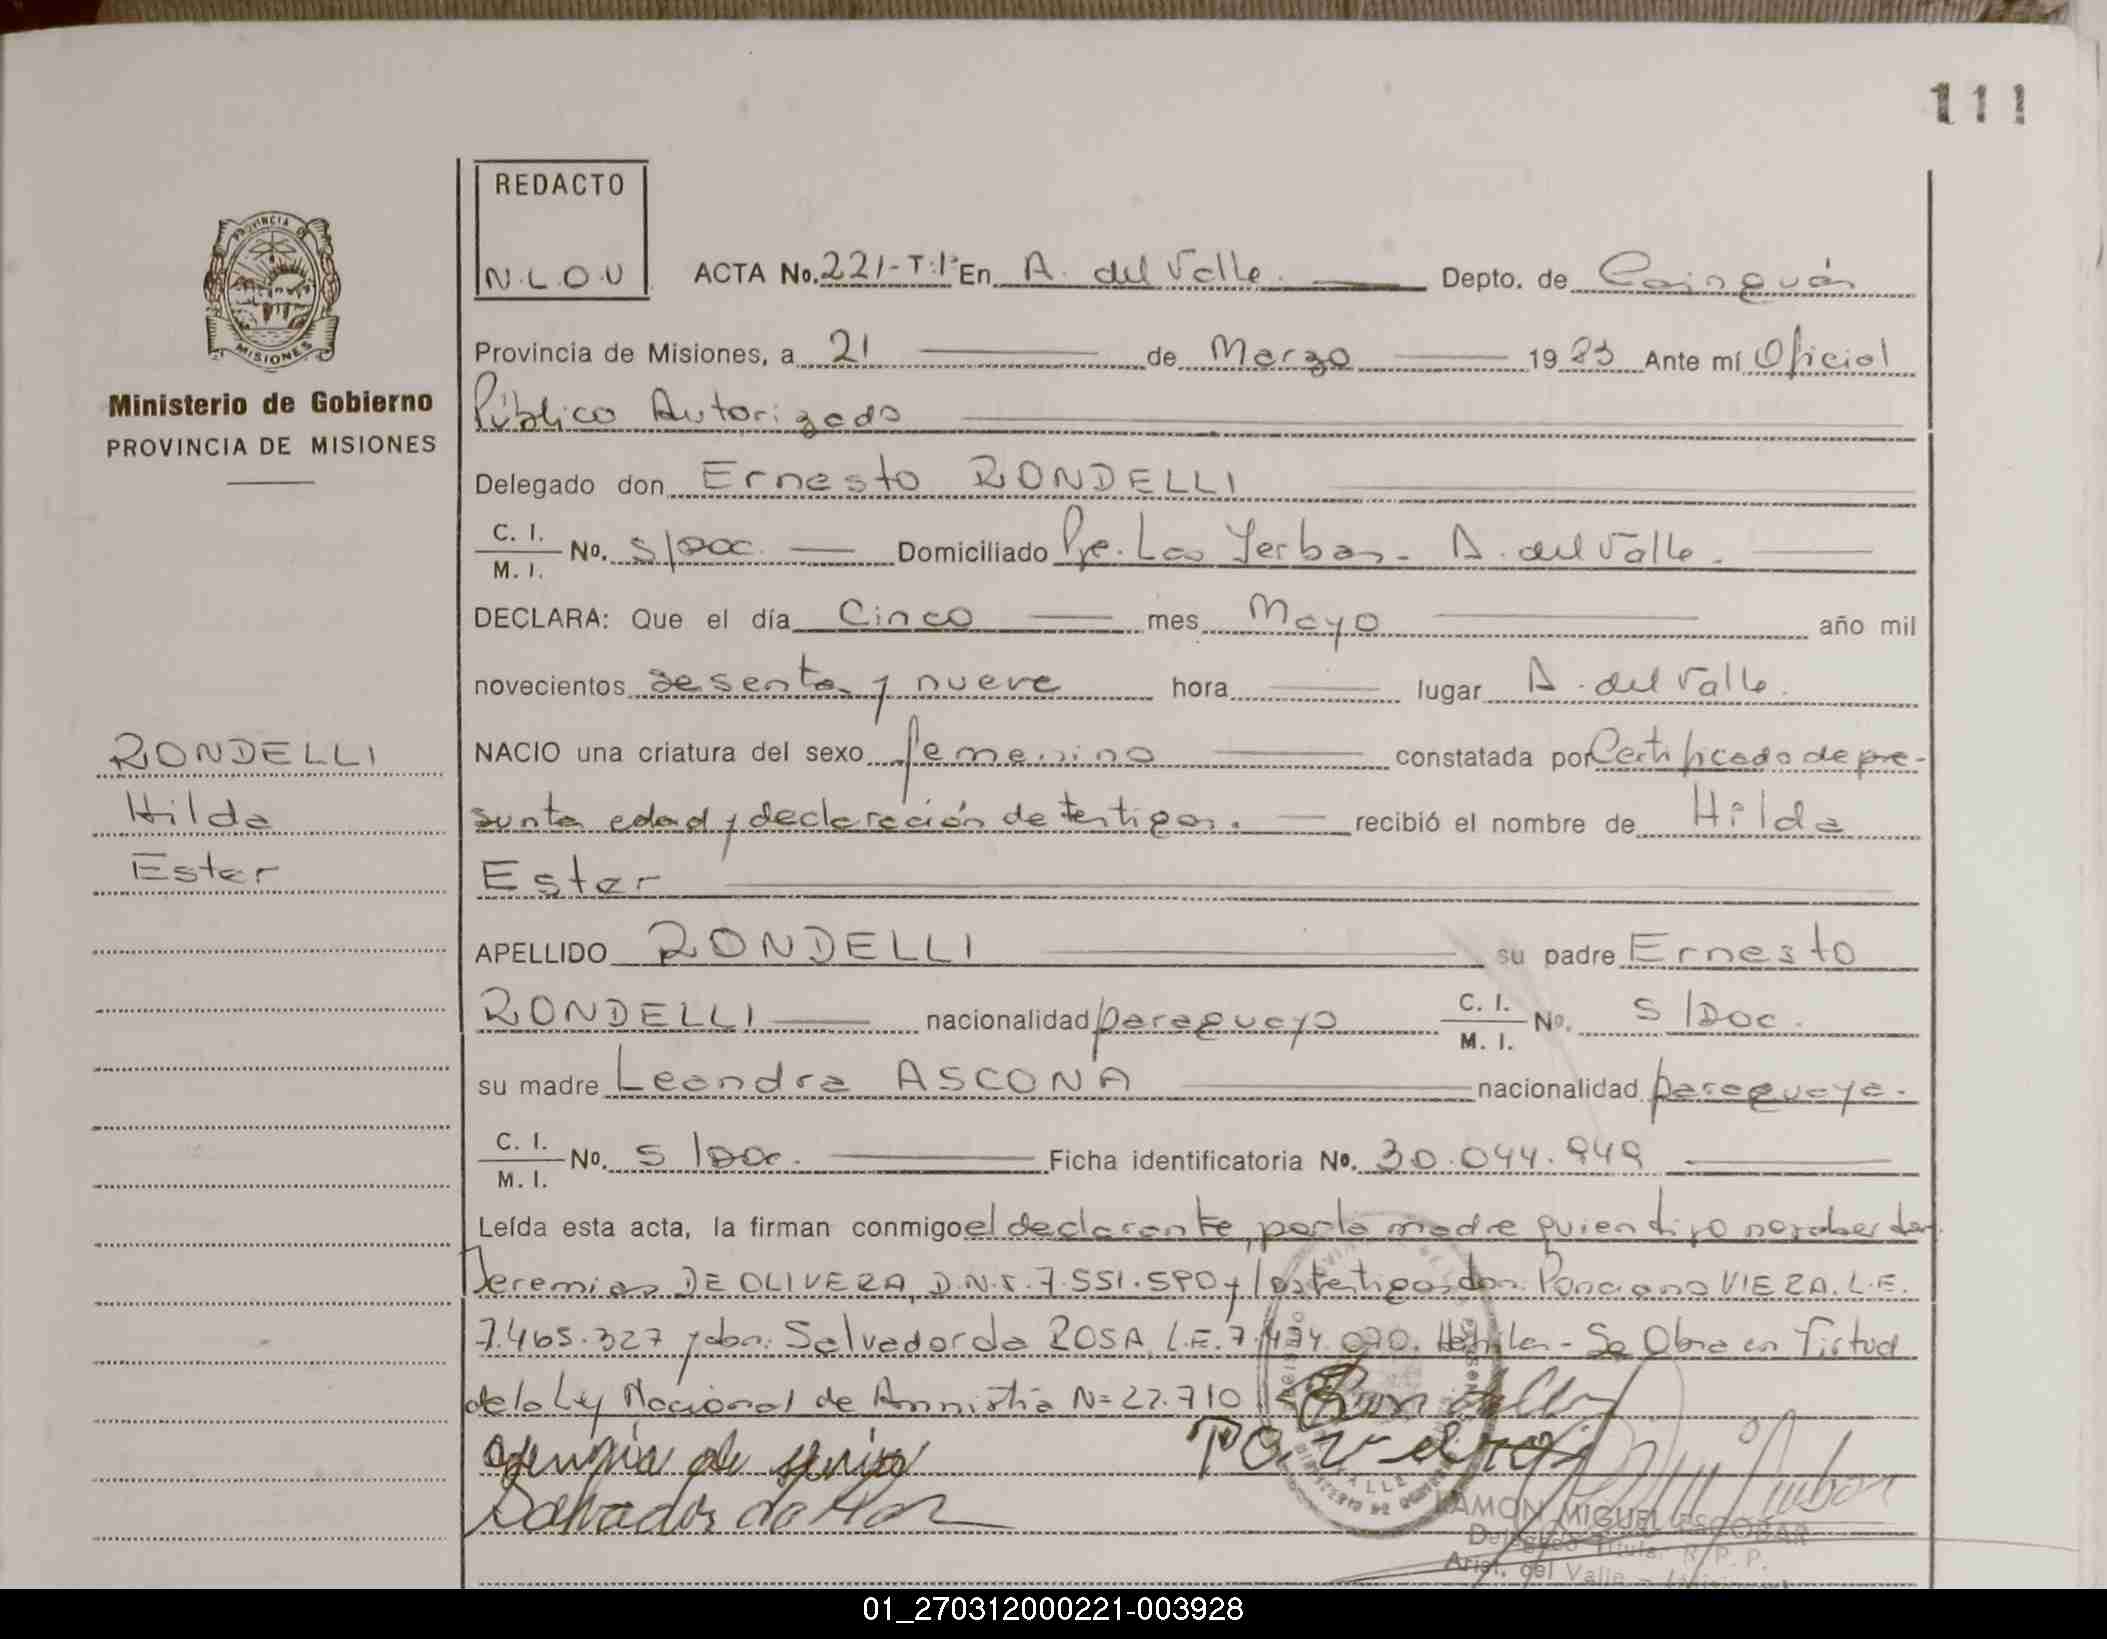 111
REDACTO
N.L.O.U
PROVINCIA DE
MISIONES
ACTA No. 221-T:1º En A. del Valle. Depto. de Cainguás
Provincia de Misiones, a 21 de Marzo 1983 Ante mí Oficial
Ministerio de Gobierno
PROVINCIA DE MISIONES
Público Autorizado
Delegado don Ernesto RONDELLI
C. I.
M. I. No. S/Doc. Domiciliado Pje. Las Yerbas - A. del Valle.
DECLARA: Que el día Cinco mes Mayo año mil
novecientos sesenta y nueve hora lugar A. del Valle.
RONDELLI
Hilda
Ester
NACIO una criatura del sexo femenino constatada por Certificado de pre-
sunta edad y declaración de testigos. recibió el nombre de Hilda
Ester
APELLIDO RONDELLI su padre Ernesto
RONDELLI nacionalidad paraguayo C. I. M. I. No. S/Doc.
su madre Leandra ASCONA nacionalidad paraguaya.
C. I.
M. I. No. S/Doc. Ficha identificatoria No. 30.044.949
Leída esta acta, la firman conmigo el declarante, por la madre quien dijo no saber
Jeremias DE OLIVERA, D.N.I. 7.551.590 y los testigos don: Ponciano VIERA. L.E.
7.465.327 y don: Salvador da ROSA L.E. 7.494.070. Hábiles - Se Obra en Virtud
de la Ley Nacional de Amnistia N= 22.710
Salvador da
RAMON MIGUEL ESCOBAR
Delegado Titular R. P. P.
Arist. del Valle - Misiones
01_270312000221-003928